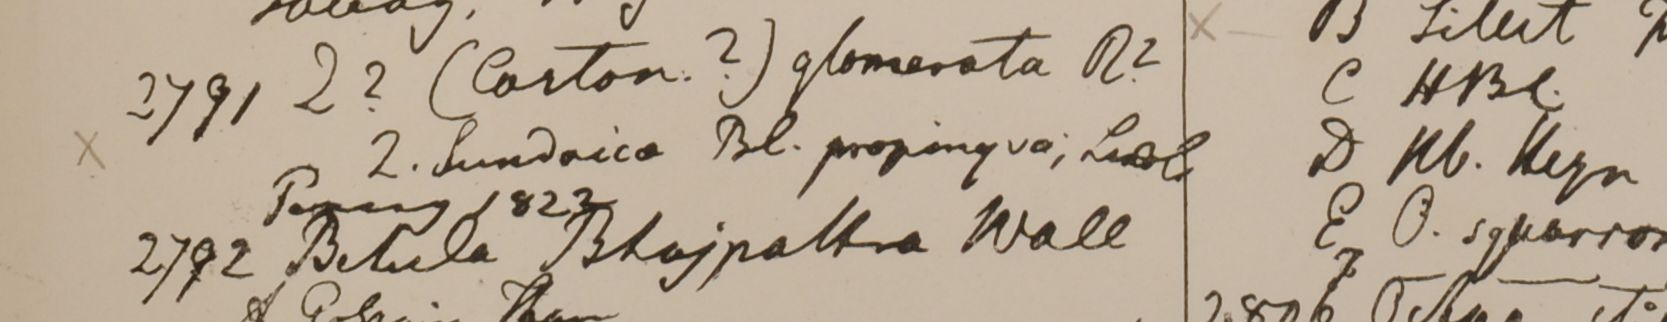 2791 2? (Caston.?) glomerata R?
2. Sundaica Bl. propinqva; Lindl
Penang 1822
2792 Betula Bhojpattra Wall
B Silut
C HBC.
D Hb. Heyn
E O. squarros